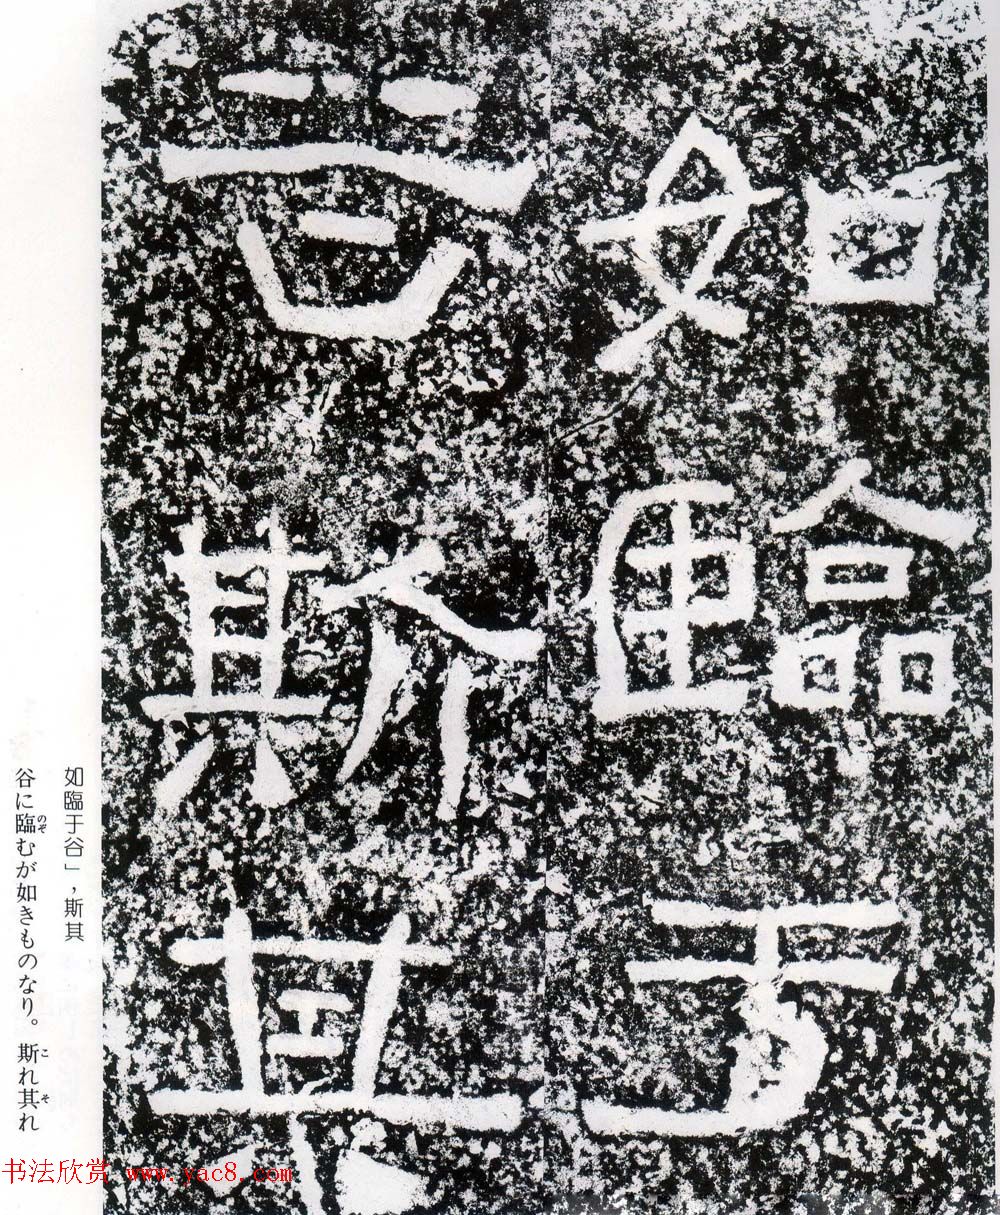 如臨于
谷斯其
如臨于谷」，斯其
谷に臨むが如きものなり。斯れ其れ
のぞ
こ
そ
书法欣赏 www.yac8.com